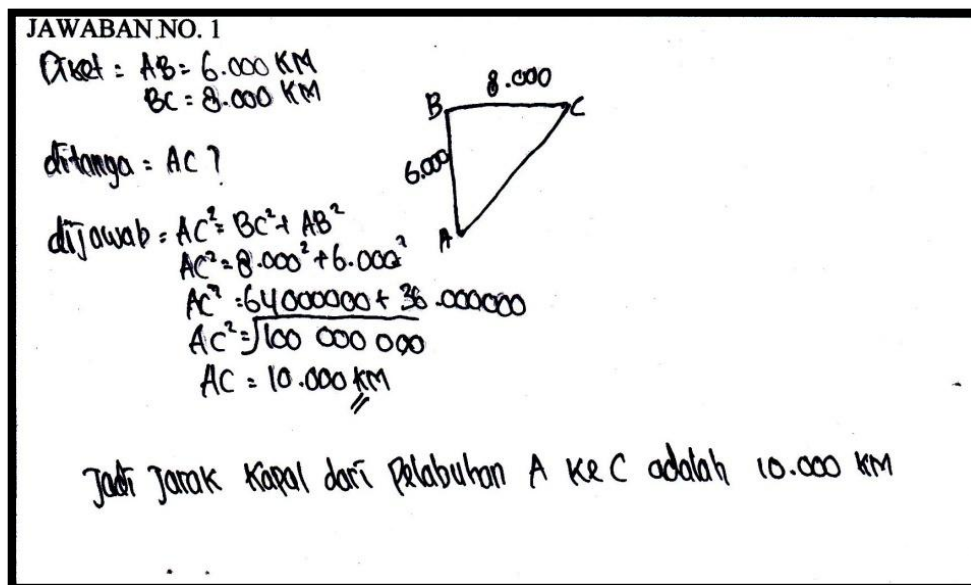 JAWABAN NO. 1
Diket = AB = 6.000 KM
BC = 8.000 KM
ditanya = AC ?
8.000
B
C
6.000
A
dijawab = AC² = BC² + AB²
AC² = 8.000² + 6.000²
AC² = 64000000 + 36.000000
AC² = √100 000 000
AC = 10.000 KM
Jadi Jarak Kapal dari Pelabuhan A Ke C adalah 10.000 KM